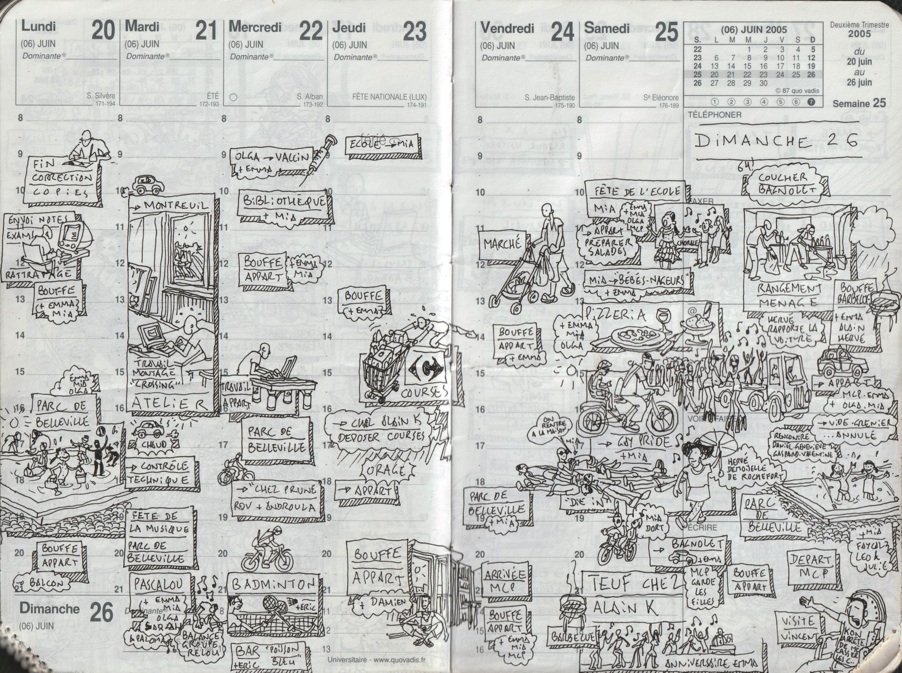 Lundi 20
(06) JUIN
Dominante
S. Silvère
171-194
Mardi 21
(06) JUIN
Dominante
ÉTÉ
172-193
Mercredi 22
(06) JUIN
Dominante
S. Alban
173-192
Jeudi 23
(06) JUIN
Dominante
FÊTE NATIONALE (LUX)
174-191
Vendredi 24
(06) JUIN
Dominante
S. Jean-Baptiste
175-190
Samedi 25
(06) JUIN
Dominante
Sᵉ Eléonore
176-189
(06) JUIN 2005
S. L M M J V S D
22 1 2 3 4 5
23 6 7 8 9 10 11 12
24 13 14 15 16 17 18 19
25 20 21 22 23 24 25 26
26 27 28 29 30
© 87 quo vadis
1 2 3 4 5 6 7
Deuxième Trimestre
2005
du
20 juin
au
26 juin
Semaine 25
TÉLÉPHONER
FIN
CORRECTION
COPIES
ENVOI NOTES
EXAMS
RATTRAPAGE
BOUFFE
+ EMMA
MIA
PARC DE
BELLEVILLE
BOUFFE
APPART
BALCON
Dimanche 26
(06) JUIN
Dominante
→ MONTREUIL
TRAVAIL
MONTAGE
"CROSSING"
ATELIER
CHAUD
→ CONTRÔLE
TECHNIQUE
FÊTE DE
LA MUSIQUE
PARC DE
BELLEVILLE
PASCALOU
+ EMMA
MIA
OLGA
BALANCE
GROUPE
RELOU
OLGA → VACCIN
+ EMMA
BIBLIOTHEQUE
+ MIA
BOUFFE
APPART
+ EMMA
MIA
TRAVAIL
APPART
PARC DE
BELLEVILLE
→ CHEZ PRUNE
RDV + ANDROULA
BADMINTON
+ ERIC
BAR "POISSON
BLEU
+ ERIC
ECOLE → MIA
BOUFFE
+ EMMA
COURSES
→ CHEZ ALAIN K
DEPOSER COURSES
ORAGE
→ APPART
BOUFFE
APPART
+ DAMIEN
Universitaire - www.quovadis.fr
MARCHÉ
BOUFFE
APPART
+ EMMA
PARC DE
BELLEVILLE
+ MIA
ARRIVÉE
MCP
BOUFFE
APPART
+ EMMA
MIA
MCP
FÊTE DE L'ECOLE
MIA
+ EMMA
MIA
OLGA
MCP
→ APPART
PREPARER
SALADES
CHORALE
MIA → BÉBÉS-NAGEURS
+ EMMA
PIZZERIA
+ EMMA
MIA
OLGA
ON
RENTRE
→ GAY PRIDE
+ MIA
"DIE IN"
MIA
DORT
HERVÉ
DEMOISELLE
DE ROCHEFORT
→ BAGNOLET
MCP
GARDE
LES
FILLES
TEUF CHEZ
ALAIN K
BARBECUE
ANNIVERSAIRE EMMA
DIMANCHE 26
6H
COUCHER
BAGNOLET
RANGEMENT
MENAGE
HERVÉ
RAPPORTE LA
VOITURE
BOUFFE
BARBECUE
+ EMMA
ALAIN
HERVÉ
→ APPART
MCP. EMMA
+ OLGA. MIA
→ VIDE GRENIER
ANNULÉ
PARC
DE
BELLEVILLE
+ MIA
BOUFFE
APPART
DEPART
MCP
VISITE
VINCENT